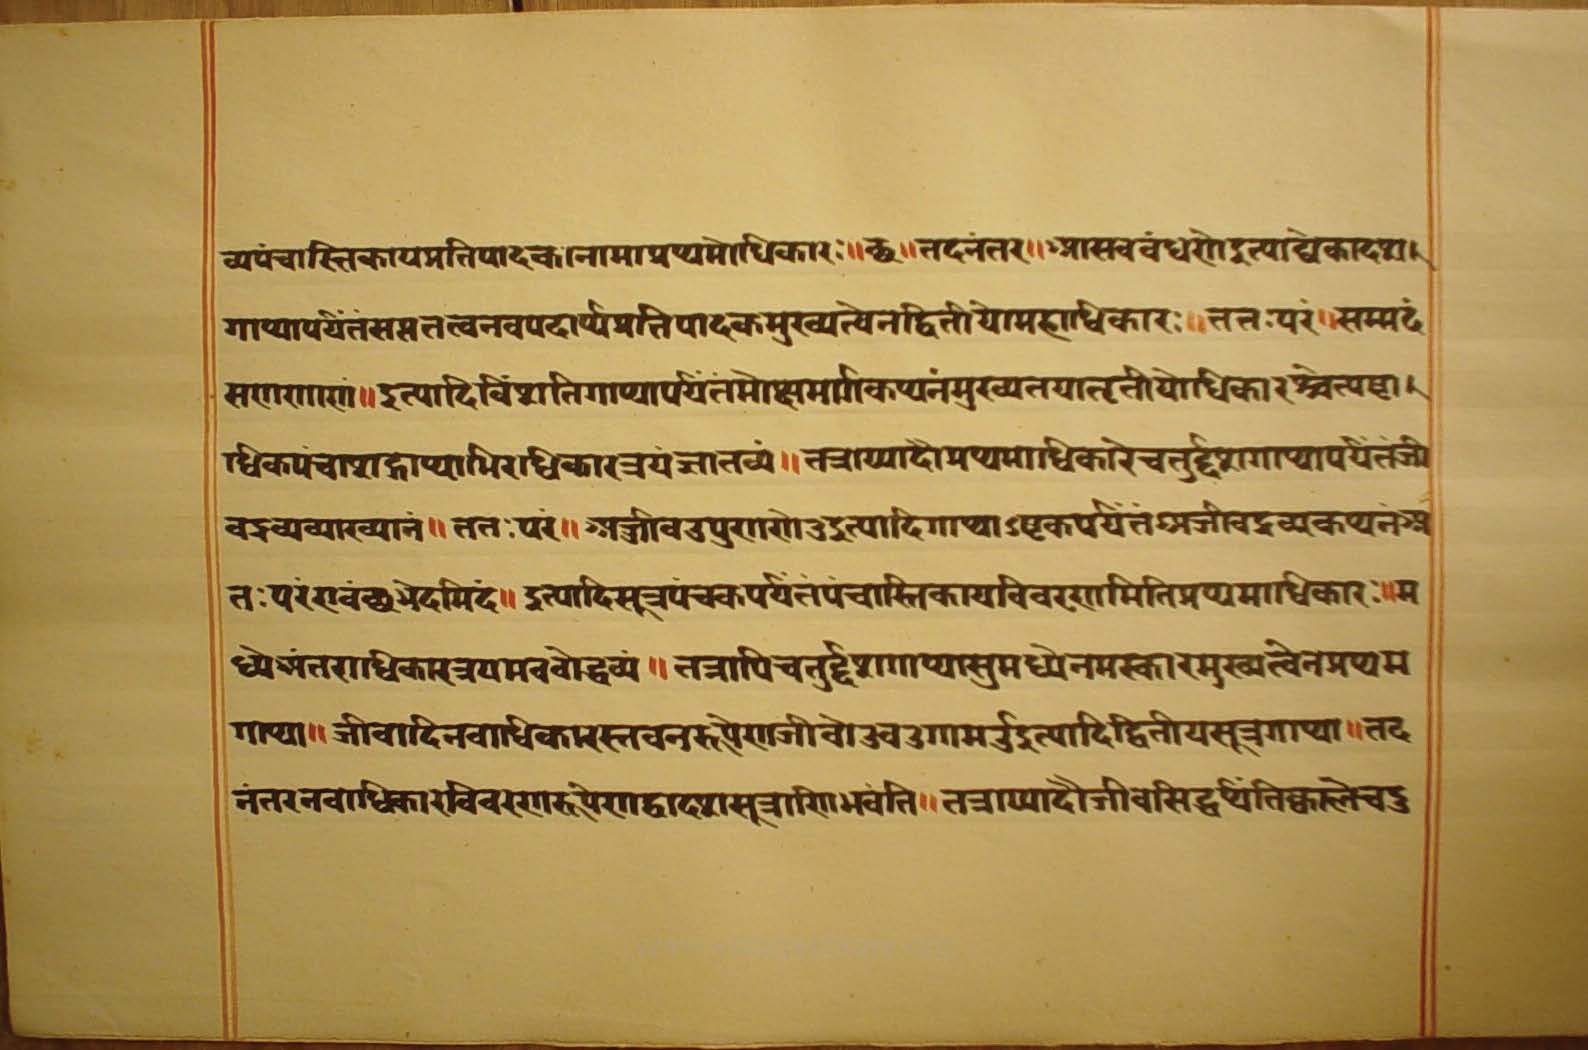 व्यपंचास्तिकायप्रतिपादकानामाप्रथमोधिकारः॥छ॥तदनंतर॥आसवबंधणोइत्याद्येकादश।
गाथापर्यंतंसप्ततत्वनवपदार्थप्रतिपादकमुख्यत्वेनद्वितीयोमहाधिकारः॥ततःपरं॥सम्मदं
सणणाणं॥इत्यादिविंशतिगाथापर्यंतंमोक्षमार्गकथनंमुख्यतयातृतीयोधिकारश्चेत्यष्टा।
धिकपंचाशद्गाथाभिराधिकारत्रयंज्ञातव्यं॥तत्राप्यादौप्रथमाधिकारेचतुर्द्दशगाथापर्यंतंजी
वद्रव्यव्याख्यानं॥ततःपरं॥अज्जीवउपुराणोउइत्यादिगाथाऽष्टकपर्यंतंअजीवद्रव्यकथनंअ
तःपरंएवंछभेदमिदं॥इत्यादिसूत्रपंचकपर्यंतंपंचास्तिकायविवरणमितिप्रथमाधिकारः॥म
ध्येअंतराधिकारत्रयमवबोद्धव्यं॥तत्रापिचतुर्द्दशगाथासुमध्येनमस्कारमुख्यत्वेनप्रथम
गाथा॥जीवादिनवाधिकारस्तवनरूपेणजीवोउवउगामर्उइत्यादिद्वितीयसूत्रगाथा॥तद
नंतरनवाधिकारविवरणरूपेणद्वादशसूत्राणिभवंति॥तत्राप्यादौजीवसिद्ध्यर्थंतिक्कालेचदु